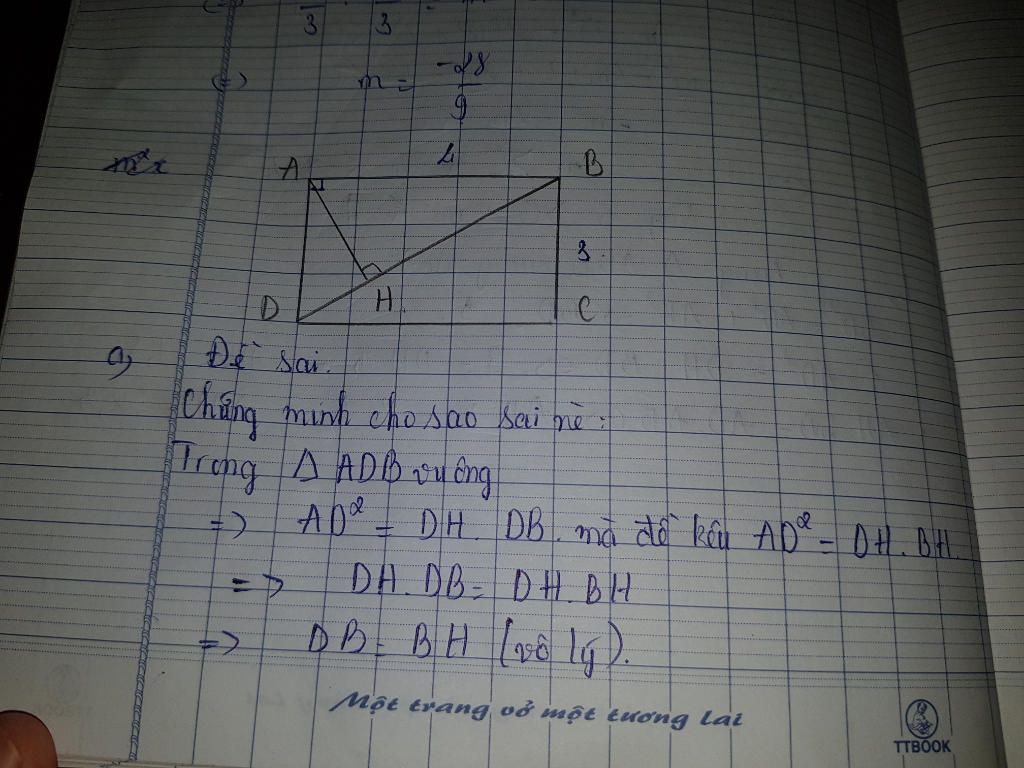 3 3
(=) m = -28/9
A 4 B
3
D H C
a, Đề sai.
Chứng minh cho sao sai nè:
Trong Δ ADB vuông
=> AD² = DH. DB. mà đề kêu AD² = DH. BH
=> DH. DB = DH. BH
=> DB = BH (vô lý).
Một trang vở một tương lai
TTBOOK